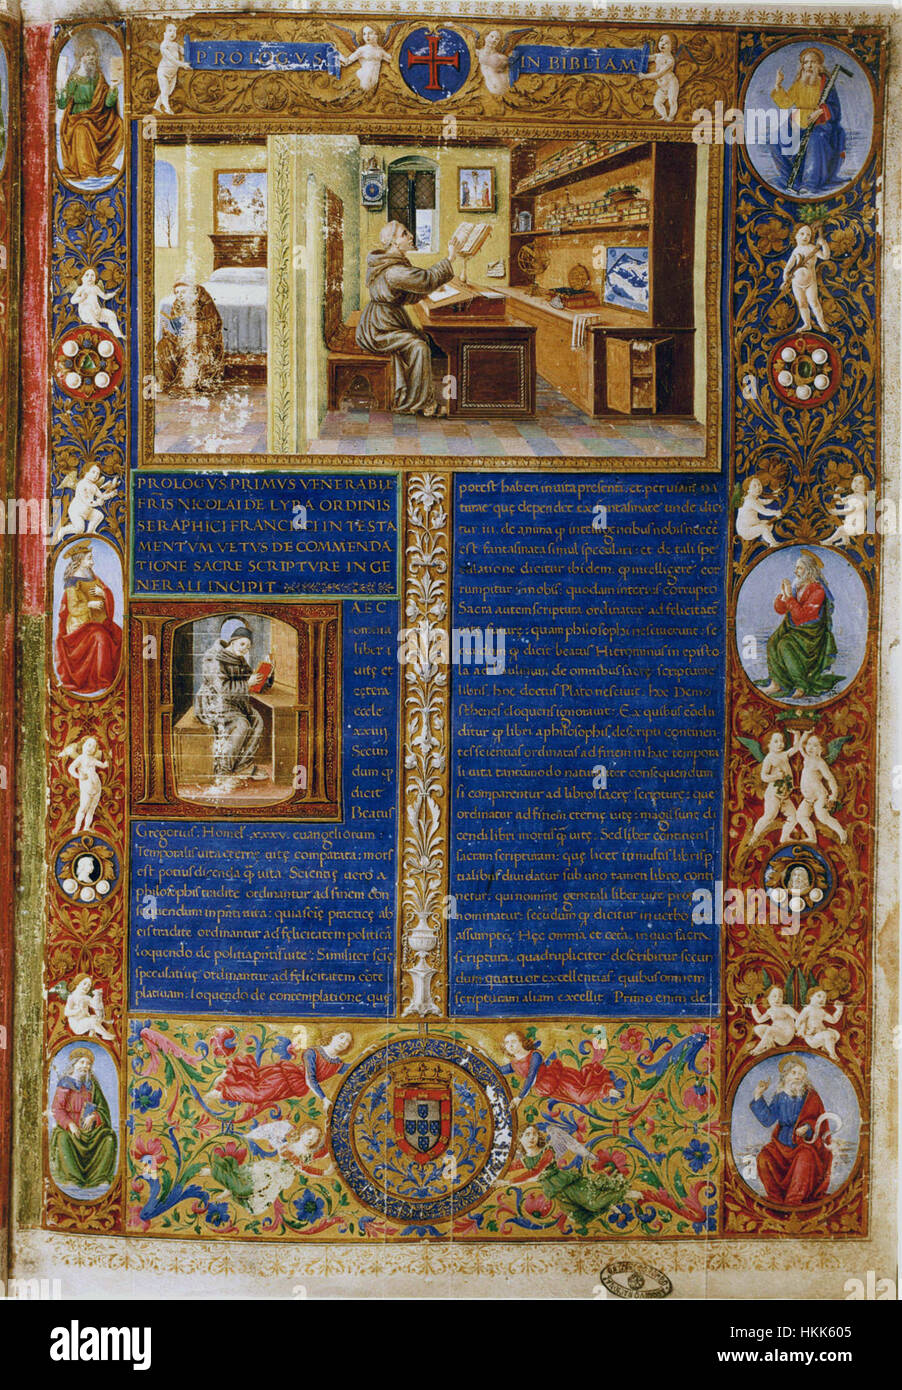 PROLOGVS IN BIBLIAM
PROLOGVS PRIMVS VENERABILI
FRIS NICOLAI DE LYRA ORDINIS
SERAPHICI FRANCISCI IN TESTA
MENTVM VETVS DE COMMENDA
TIONE SACRE SCRIPTVRE IN GE
NERALI INCIPIT
H
AEC
omnia
liber
uitę et
cetera
eccle
xxiiij
Secun
dum q
dicit
Beatus
Gregorius. Homel. xxxv. euangeliorum.
Temporalis uita eternę uitę comparata: mors
est potius dicenda q uita. Scientię uero a
philosophis tradite ordinantur ad finem con
sequendum in uita: quia scię practicę ab
eis tradite ordinantur ad felicitatem politicā
loquendo de politia pntis uite: Similiter scię
speculatiuę ordinantur ad felicitatem cōte
platiuam. loquendo de contemplatione quę
potest haberi in uita presenti. et per uiam na
turae quę dependet ex fantasmate unde dici
tur iii. de anima q intelligentibus nobis necece
est fantasmata simul speculari: et de tali spe
culatione dicitur ibidem. q intelligere cor
rumpitur in nobis: quodam interius corrupto
Sacra autem scriptura ordinatur ad felicitatē
uitę futurę: quam philosophi nesciuerunt: se
cundum q dicit beatus Hieronimus in episto
la ad Paulinum. de omnibus sacrę scripturae
libris. hoc doctus Plato nesciuit. hoc Demo
sthenes eloquens ignorauit: Ex quibus cōclu
ditur q libri a philosophis descripti continen
tes scientias ordinatas ad finem in hac tempora
li uita tantummodo naturaliter consequendum
si comparentur ad libros sacrę scripturę: quę
ordinatur ad finem eternę uitę: magis sunt di
cendi libri mortis q uitę. Sed liber continens
sacram scripturam: quę licet in multis libris p
tialibus diuidatur sub uno tamen libro conti
netur: qui nomine generali liber uitę
nominatur: secundum q dicitur in uerbo
assumpto: Hęc omnia et cetera. in quo sacra
scriptura. quadrupliciter describitur secun
dum quatuor excellentias quibus omnem
scripturam aliam excellit. Primo enim de
alamy
Image ID: HKK605
www.alamy.com